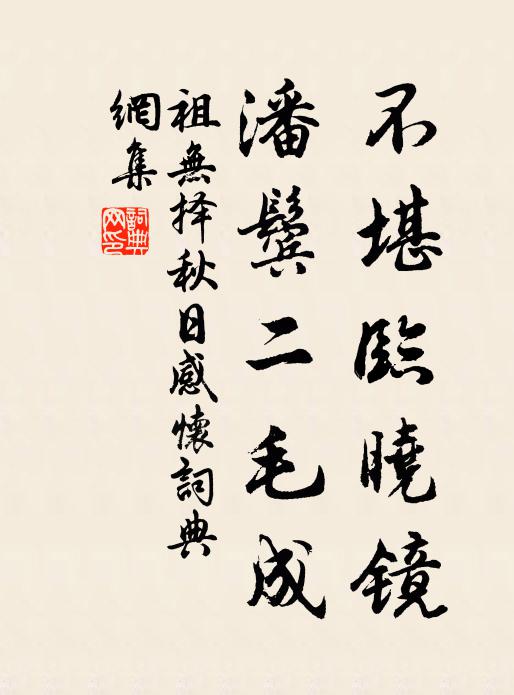 不堪臨曉鏡
潘鬢二毛成
祖無择秋日感懷詞典
網集
詞典網印